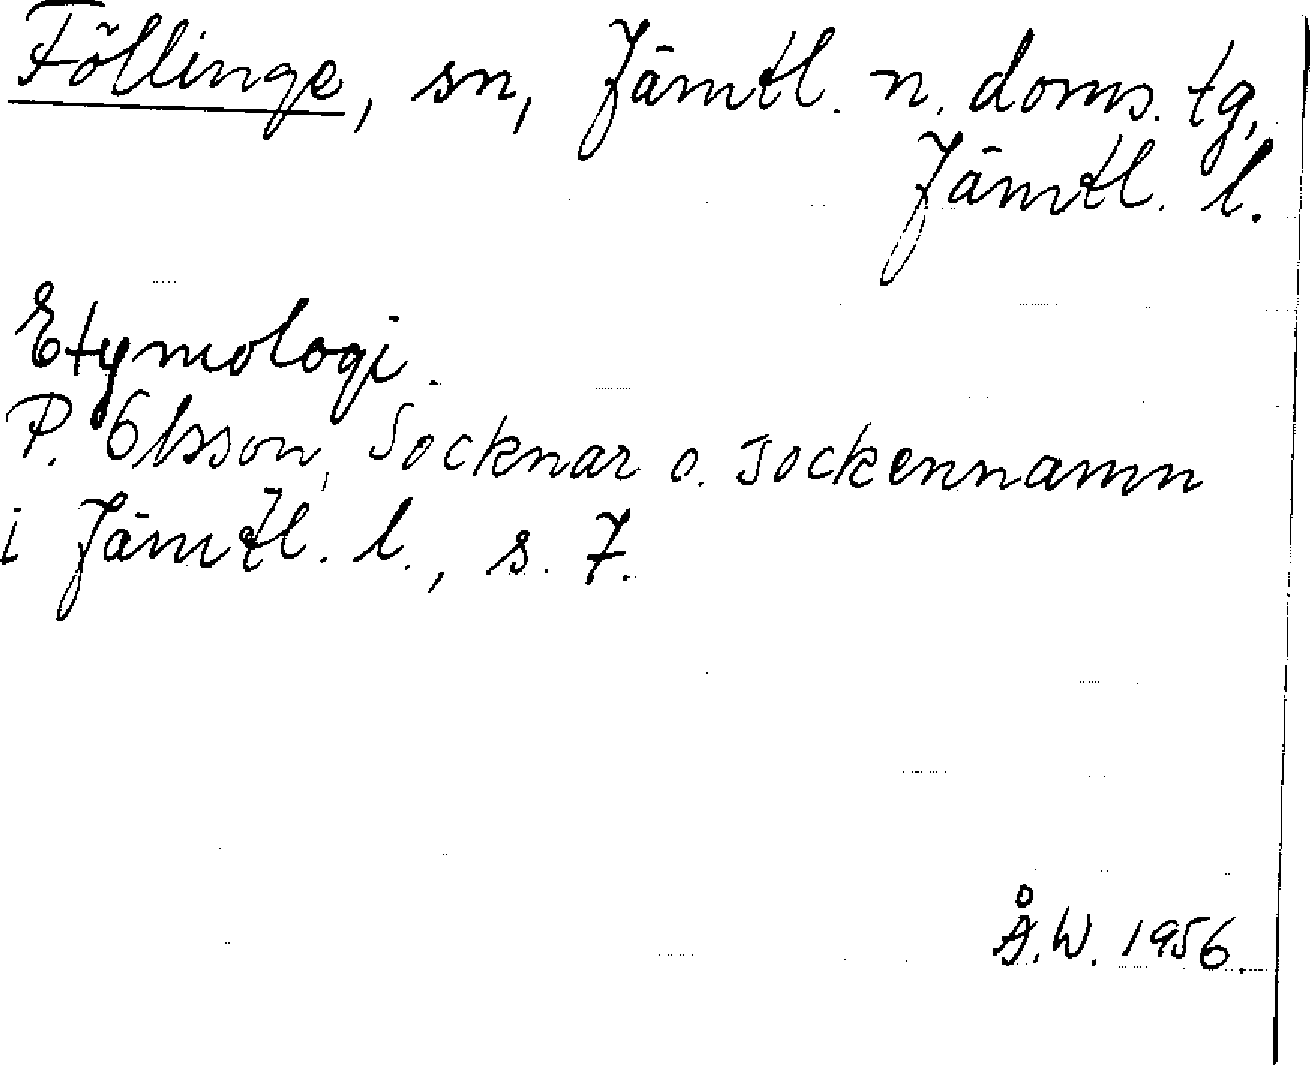 Föllinge, sn, Jämtl. n. doms. tg,
Jämtl. l.
Etymologi.
P. Olsson, Socknar o. sockennamn
i Jämtl. l., s. 7.
Å.W. 1956.